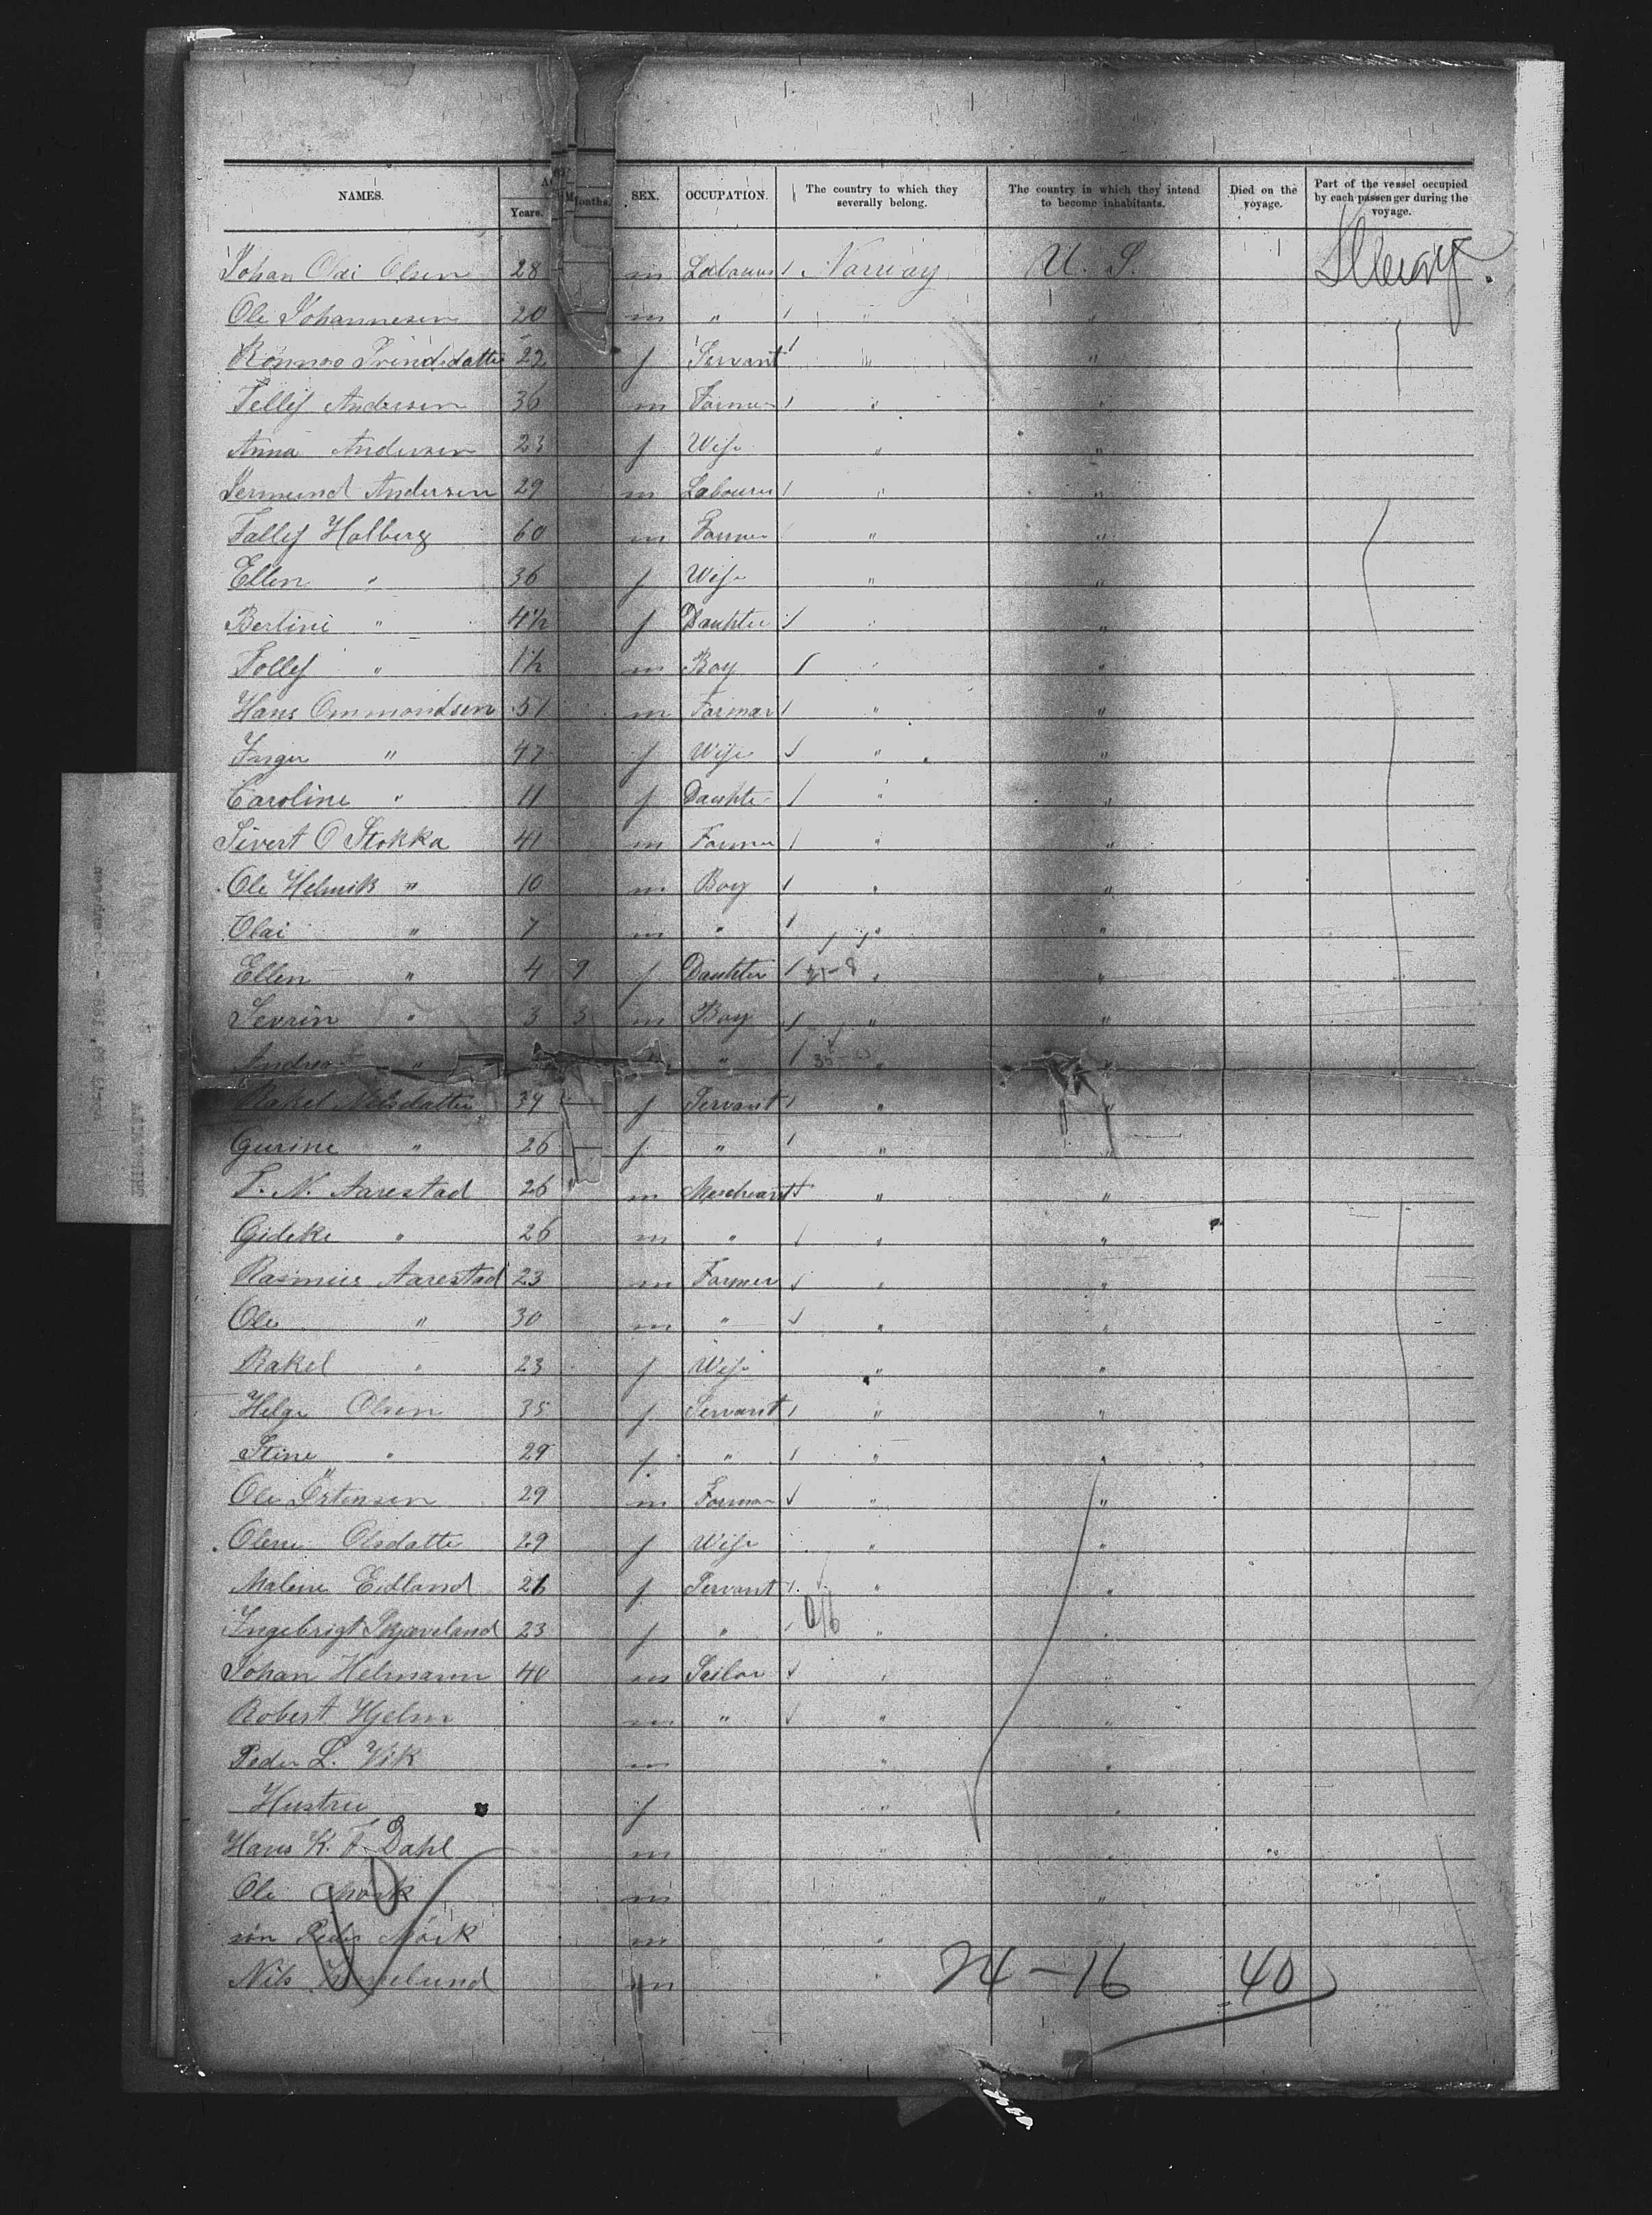 NAMES. Years. Months. SEX. OCCUPATION. The country to which they severally belong. The country in which they intend to become inhabitants. Died on the voyage. Part of the vessel occupied by each passenger during the voyage.
Johan Olai Olsen 28 m Labourer Norway U. S.
Ole Johannesen 20 m " " "
22 f Servant " "
Tellef Andersen 36 m Farmer " "
Anna Andersen 23 f Wife " "
Andersen 29 m Labourer " "
Tallef Holberg 60 m Farmer " "
Ellen " 36 f Wife " "
Bertine " 4½ f Daughter " "
Tollef " 1½ m Boy " "
Hans Ommondsen 51 m Farmar " "
Inger " 47 f Wife " "
Caroline " 11 f Daughter " "
Sivert O Stokka 41 m Farmer " "
Ole Helmik " 10 m Boy " "
Olai " 7 m " " "
Ellen " 4 9 f Daughter " "
Sevrin " 3 3 m Boy " "
Andrea " " " "
Rakel Nilsdatter 34 f Servant " "
Gurine " 26 f " " "
T. N. Aarestad 26 m Merchant " "
Gideke " 26 m " " "
Rasmus Aarestad 23 m Farmer " "
Ole " 30 m " " "
Rakel " 23 f Wife " "
Helge Olsen 35 f Servant " "
Stine " 29 f " " "
Ole Östensen 29 m Farmer " "
Olene Olsdatter 29 f Wife " "
Malene Eidland 26 f Servant " "
Ingebrigt 23 f " " "
Johan Helmann 40 m Sailor " "
Robert Hjelm m " " "
Peder L. Vik m " "
Hustru f " "
Hans K. F. Dahl m " "
Ole Mork m " "
sön Peder Mörk m "
Nils m "
24 – 16 40